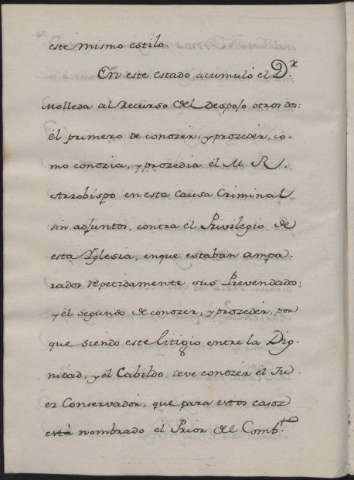 este mismo estilo
En este estado acumuló el D.r
Molleda al Recurso del Despojo otros dos:
el primero de conozer, y prozeder, co-
mo conozia, y prozedia el M. R.
Arzobispo en esta Causa Criminal
sin adjuntos, contra el Privilegio de
esta Yglesia, en que estaban ampa-
rados repetidamente sus Prevendados;
y el segundo de conozer, y prozeder, por
que siendo este litigio entre la Dig-
nidad, y el Cabildo, deve conozer el Ju-
ez Conservador, que para estos casos
está nombrado el Prior del Comb.to